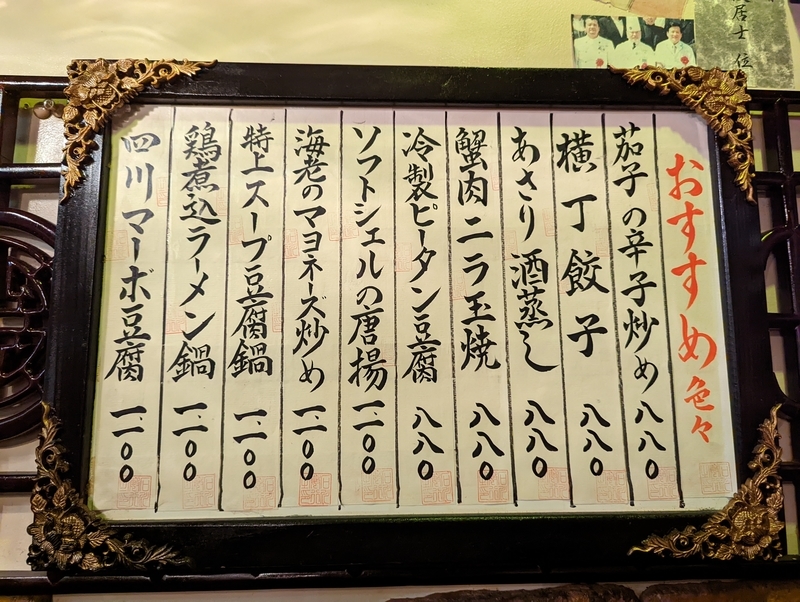 おすすめ色々
茄子の辛子炒め 八八〇
横丁餃子 八八〇
あさり酒蒸し 八八〇
蟹肉ニラ玉焼 八八〇
冷製ピータン豆腐 八八〇
ソフトシェルの唐揚 一、一〇〇
海老のマヨネーズ炒め 一、一〇〇
特上スープ豆腐鍋 一、一〇〇
鶏煮込ラーメン鍋 一、一〇〇
四川マーボ豆腐 一、一〇〇
居士 位